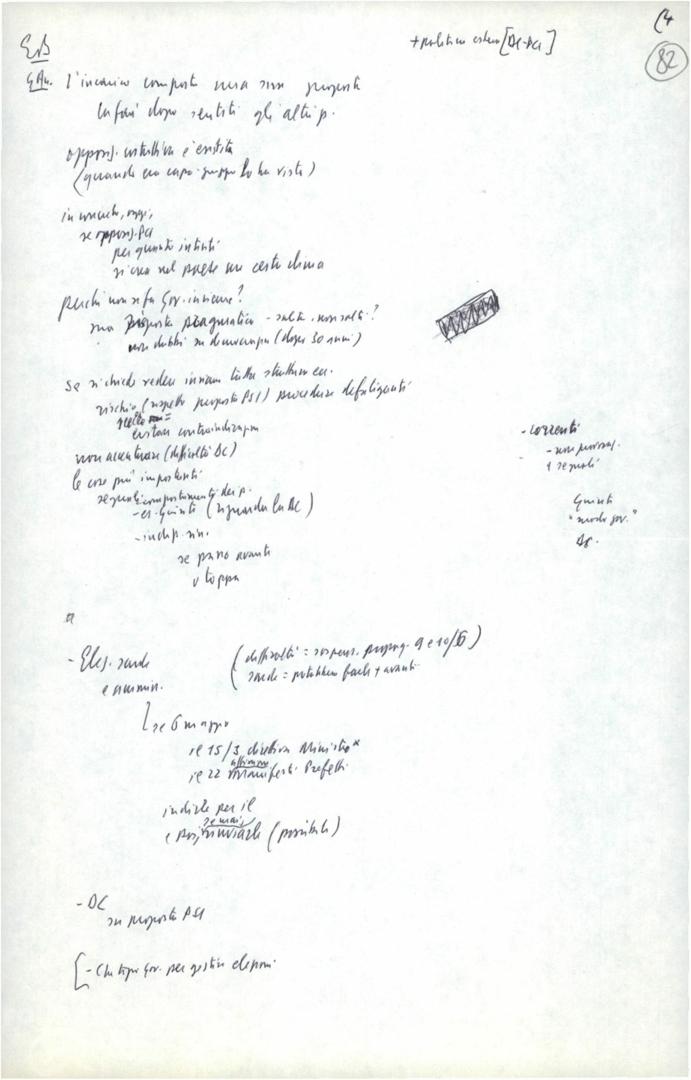 (4
82
+ politica estera [DC-PCI]
EB
GAn. l'incarico comporta una sua proposta
la farà dopo sentiti gli altri p.
opposiz. costruttiva è esistita
(quando era capo-gruppo lo ha visto)
in concreto, oggi,
se opposiz. PCI
per quanto intenti
si crea nel paese un certo clima
perché non si fa Gov. insieme?
sua risposta pragmatica - salta, non salta?
non dubbi su democrazia (dopo 30 anni)
se si chiede vedere insieme tutta struttura ec.
rischio (rispetto proposta PSI) procedure defatiganti
evitare contraddizioni
non accentuare (difficoltà DC)
le cose più importanti
segnali comportamenti dei p.
- es. Giunte (riguarda la DC)
- indip. sin.
se passo avanti
o toppa
- correnti
- non
+ segnali
Giunti
"modo gov."
DC.
- Elez. sarde
e ammin.
(difficoltà = sospens. propag. 9 e 10/6)
sarde = potrebbero farle + avanti
se 6 maggio
il 15/3 direttiva Ministro
il 22 manifesti Prefetti
indirle per il
e poi, semai, rinviarle (possibile)
- DC
su proposta PSI
[- Che tipo Gov. per gestire elezioni